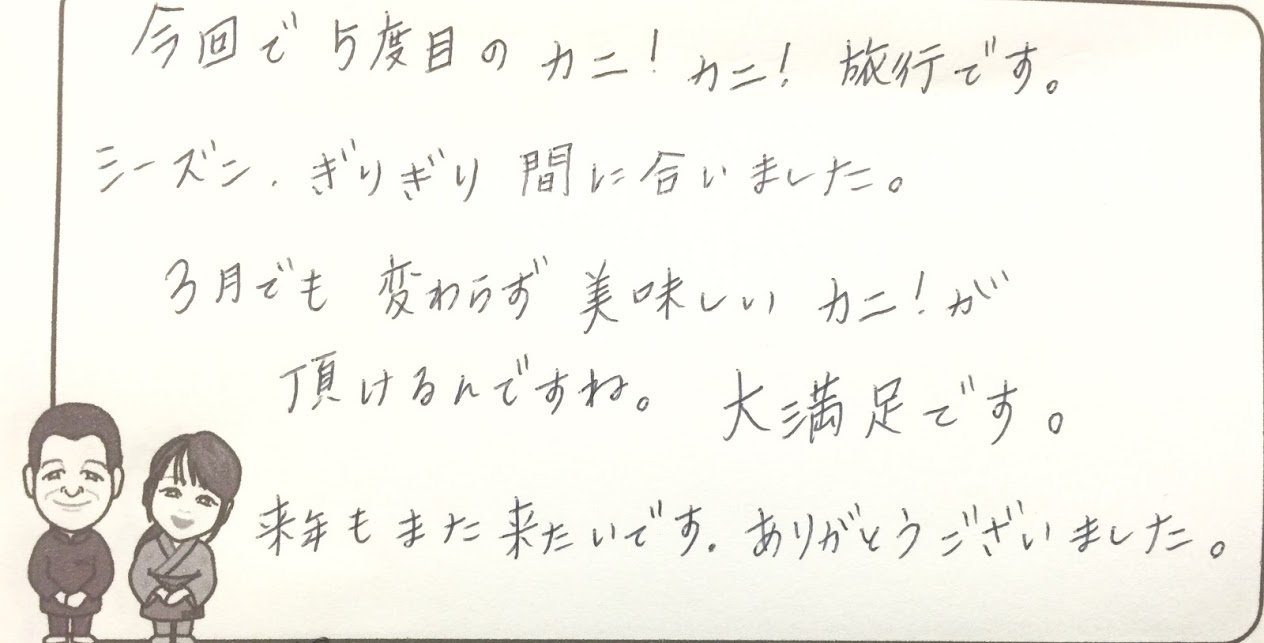 今回で5度目のカニ！カニ！旅行です。
シーズン、ぎりぎり間に合いました。
3月でも変わらず美味しいカニ！が
頂けるんですね。大満足です。
来年もまた来たいです。ありがとうございました。